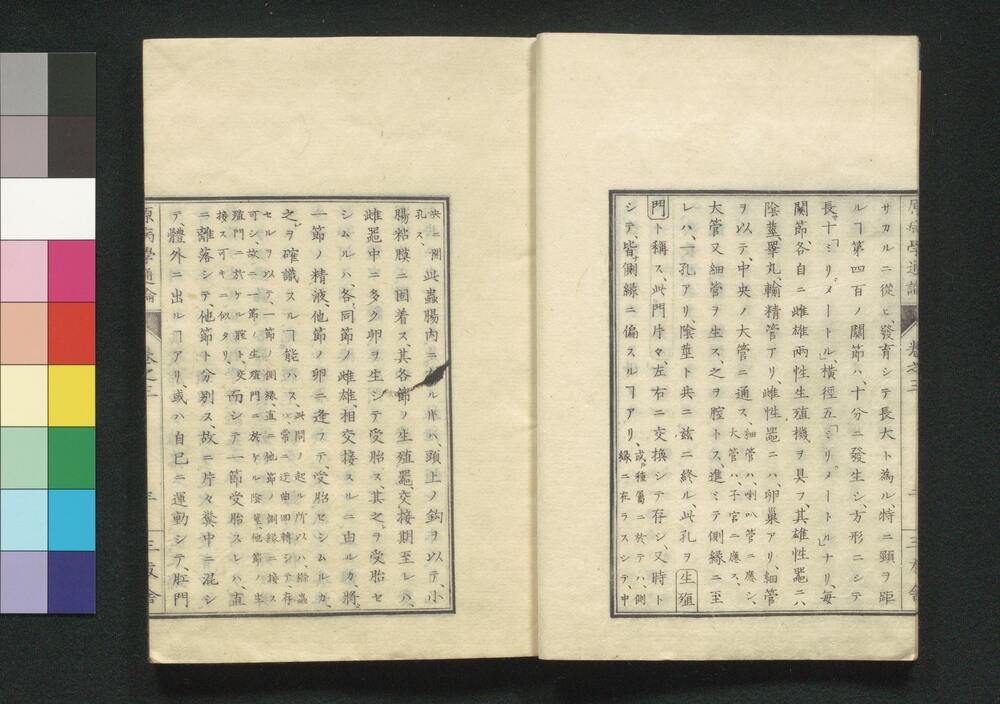 サカルニ從ヒ、發育シテ長大ト為ル特ニ頸ヲ距
ルヿ第四百ノ關節ハ、十分ニ發生シ、方形ニシテ
長サ十「ミリメートル」、橫徑五「ミリメートル」ナリ、每
關節、各自ニ雌雄兩性生殖機ヲ具フ、其雄性器ニハ
陰莖、睪丸、輸精管アリ、雌性器ニハ、卵巢アリ、細管
ヲ以テ、中央ノ大管ニ通ス、細管ハ、喇叭管ニ應シ、大管ハ、子宮ニ應ス、
大管又細管ヲ生ス、之ヲ腔トス、進ミテ側緣ニ至
レハ、一孔アリ、陰莖ト共ニ茲ニ終ル、此孔ヲ生殖
門ト稱ス、此門片々、左右ニ交換シテ存シ、又時ト
シテ、皆側緣ニ偏スルヿアリ、或種屬ニ於テハ、側緣ニ在ラスシテ、中
原病學通論 卷之三
央ニ開孔ス、此蟲腸內ニ在ル片ハ、頭上ノ鈎ヲ以テ、小
腸粘膜ニ固着ス、其各節ノ生殖器、交接期至レハ、
雌器中ニ多ク卵ヲ生シテ受胎ス、其之ヲ受胎セ
シムルハ、各、同節ノ雌雄相交接スルニ由ルカ、將
一節ノ精液、他節ノ卵ニ逢フテ、受胎セシムルカ、
之ヲ確識スルヿ能ハス、此問ノ起ル所以ハ、絛蟲ハ、常ニ迂曲回轉シテ、存
セルヲ以テ、一節ノ側緣、直ニ他節ノ側緣ニ接ス
可シ、故ニ一節ノ生殖門ニ於ケル陰莖、他節ノ生
殖門ニ於ケル腟ト、交接ス可キニ似タリ、而シテ一節受胎スレハ、直
ニ離落シテ、他節ト分別ス、故ニ片々糞中ニ混シ
テ、體外ニ出ルヿアリ、或ハ自己ニ運動シテ、肛門
原病學通論 卷之三